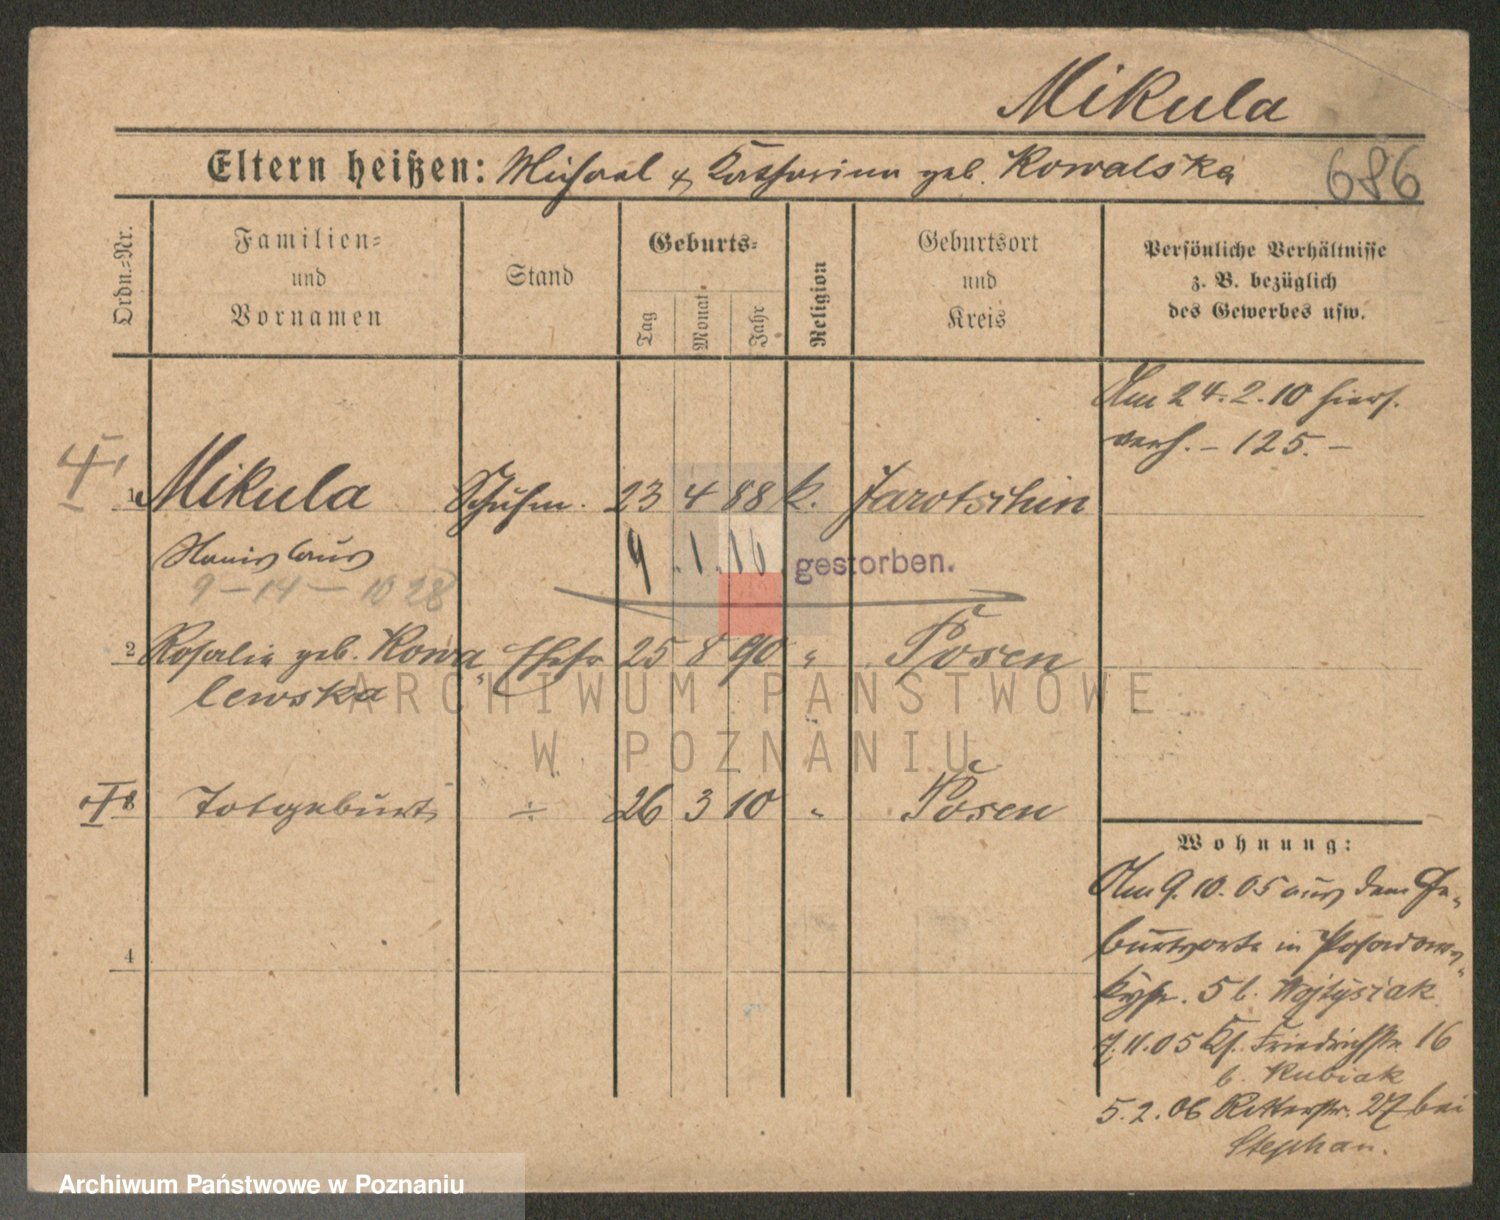 Mikula
Eltern heißen: Michael & Katharina geb. Kowalska
686
Ordn.-Nr.
Familien-
und
Vornamen
Stand
Geburts-
Tag
Monat
Jahr
Religion
Geburtsort
und
Kreis
Persönliche Verhältnisse
z. B. bezüglich
des Gewerbes usw.
Am 24.2.10 hiers.
verh. – 125. –
1 Mikula Schuhm. 23 4 88 k. Jarotschin
Stanislaus 9. 1. 16. gestorben.
9 – 14 – 10 28
2 Rosalie geb. Kowa„ Ehefr 25 8 90 " Posen
lewska
Totgeburt ÷ 26 3 10 " Posen
4
Wohnung:
Am 9.10.05 aus dem Ge-
burtsorte in Posadows„
kystr. 5 b. Wojtysiak
7.11.05 Kl. Friedrichstr. 16
b. Kubiak
5.2.06 Ritterstr. 27 bei
Stephan.
ARCHIWUM PAŃSTWOWE
W POZNANIU
Archiwum Państwowe w Poznaniu